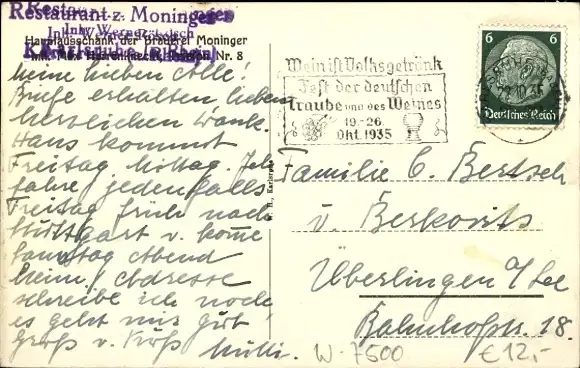 Restaurant z. Moninger
Inh. Werner
Hauptausschank der Brauerei Moninger
Nr. 8
meine lieben Alle!
Briefe erhalten, lieben
herzlichen Dank.
Hans kommt
Freitag Mittag. Ich
fahre jedenfalls
Freitag früh nach
Stuttgart u. komme
Samstag Abend
heim. Adresse
schreibe ich noch
es geht mir gut
Gruß u. Kuß
Mutti.
Wein ist Volksgetränk
Fest der deutschen
Traube und des Weines
19.-26.
Okt. 1935
6 6
Deutsches Reich
Familie C. Bertsch
u. Berkovits
Überlingen a/See
Bahnhofstr. 18.
W-7500
€12,-